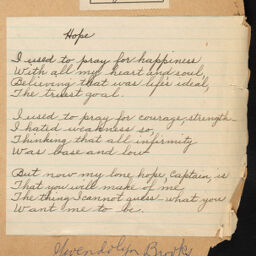 Hope
I used to pray for happiness
With all my heart and soul,
Believing that was life's ideal,
The truest goal.
I used to pray for courage, strength
I hated weakness so,
Thinking that all infirmity
Was base and low
But now my lone hope, Captain, is
That you will make of me,
The thing I cannot guess what you
Want me to be.
Gwendolyn Brooks